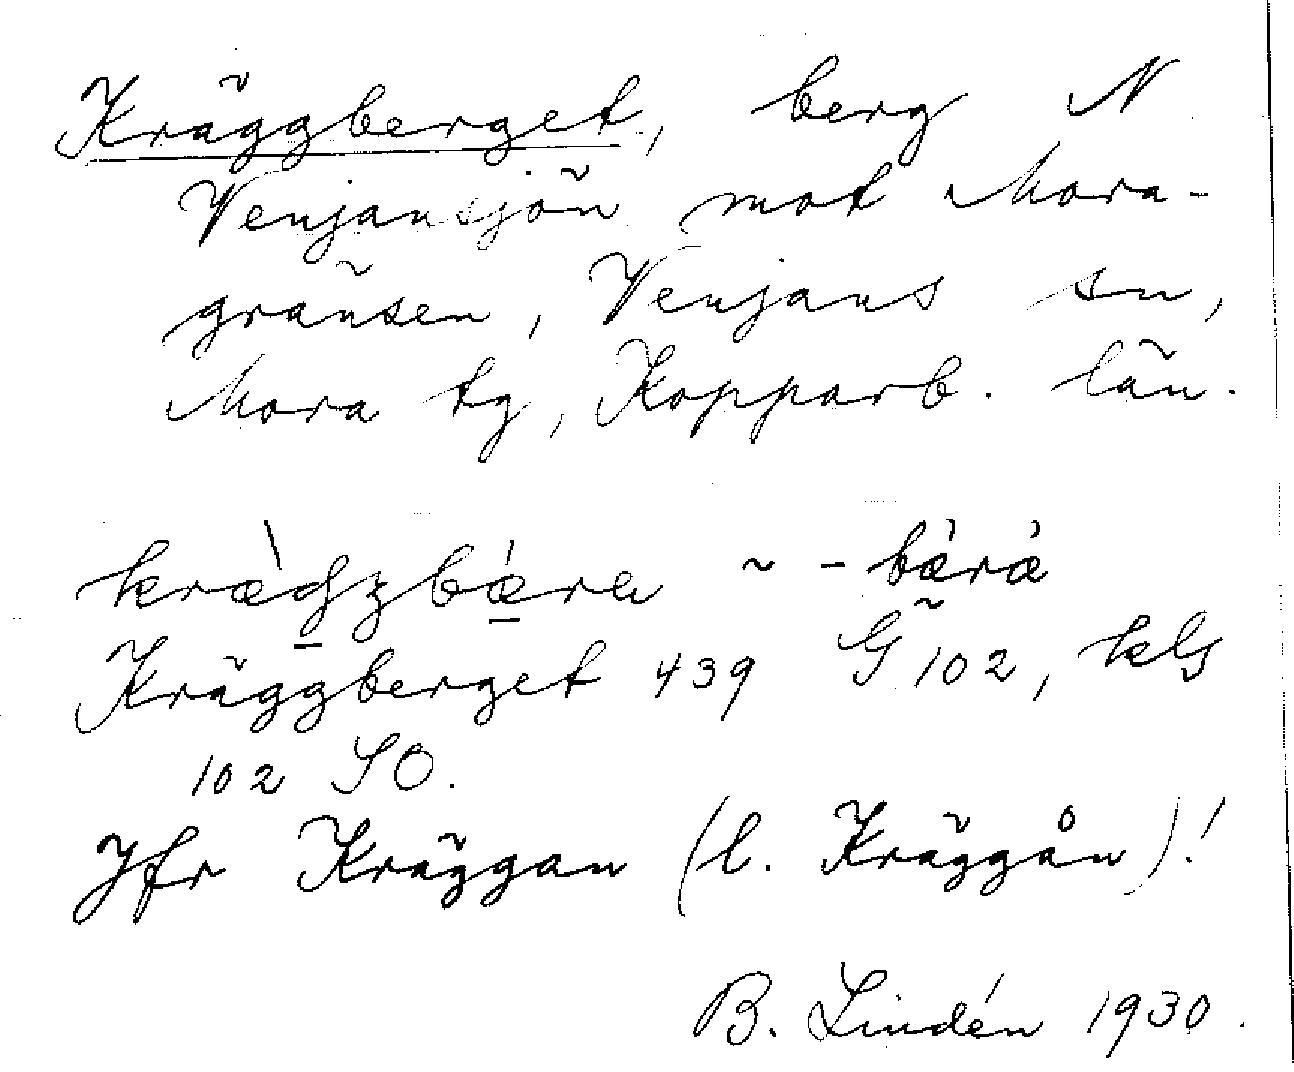 Kräggberget, berg N
Venjansjön mot Mora-
gränsen, Venjans sn,
Mora tg, Kopparb. län.
Kräggberget 439 G̃ 102, kLG
102 SO.
Jfr Kräggan (l. Kräggån)!
B. Lindén 1930.